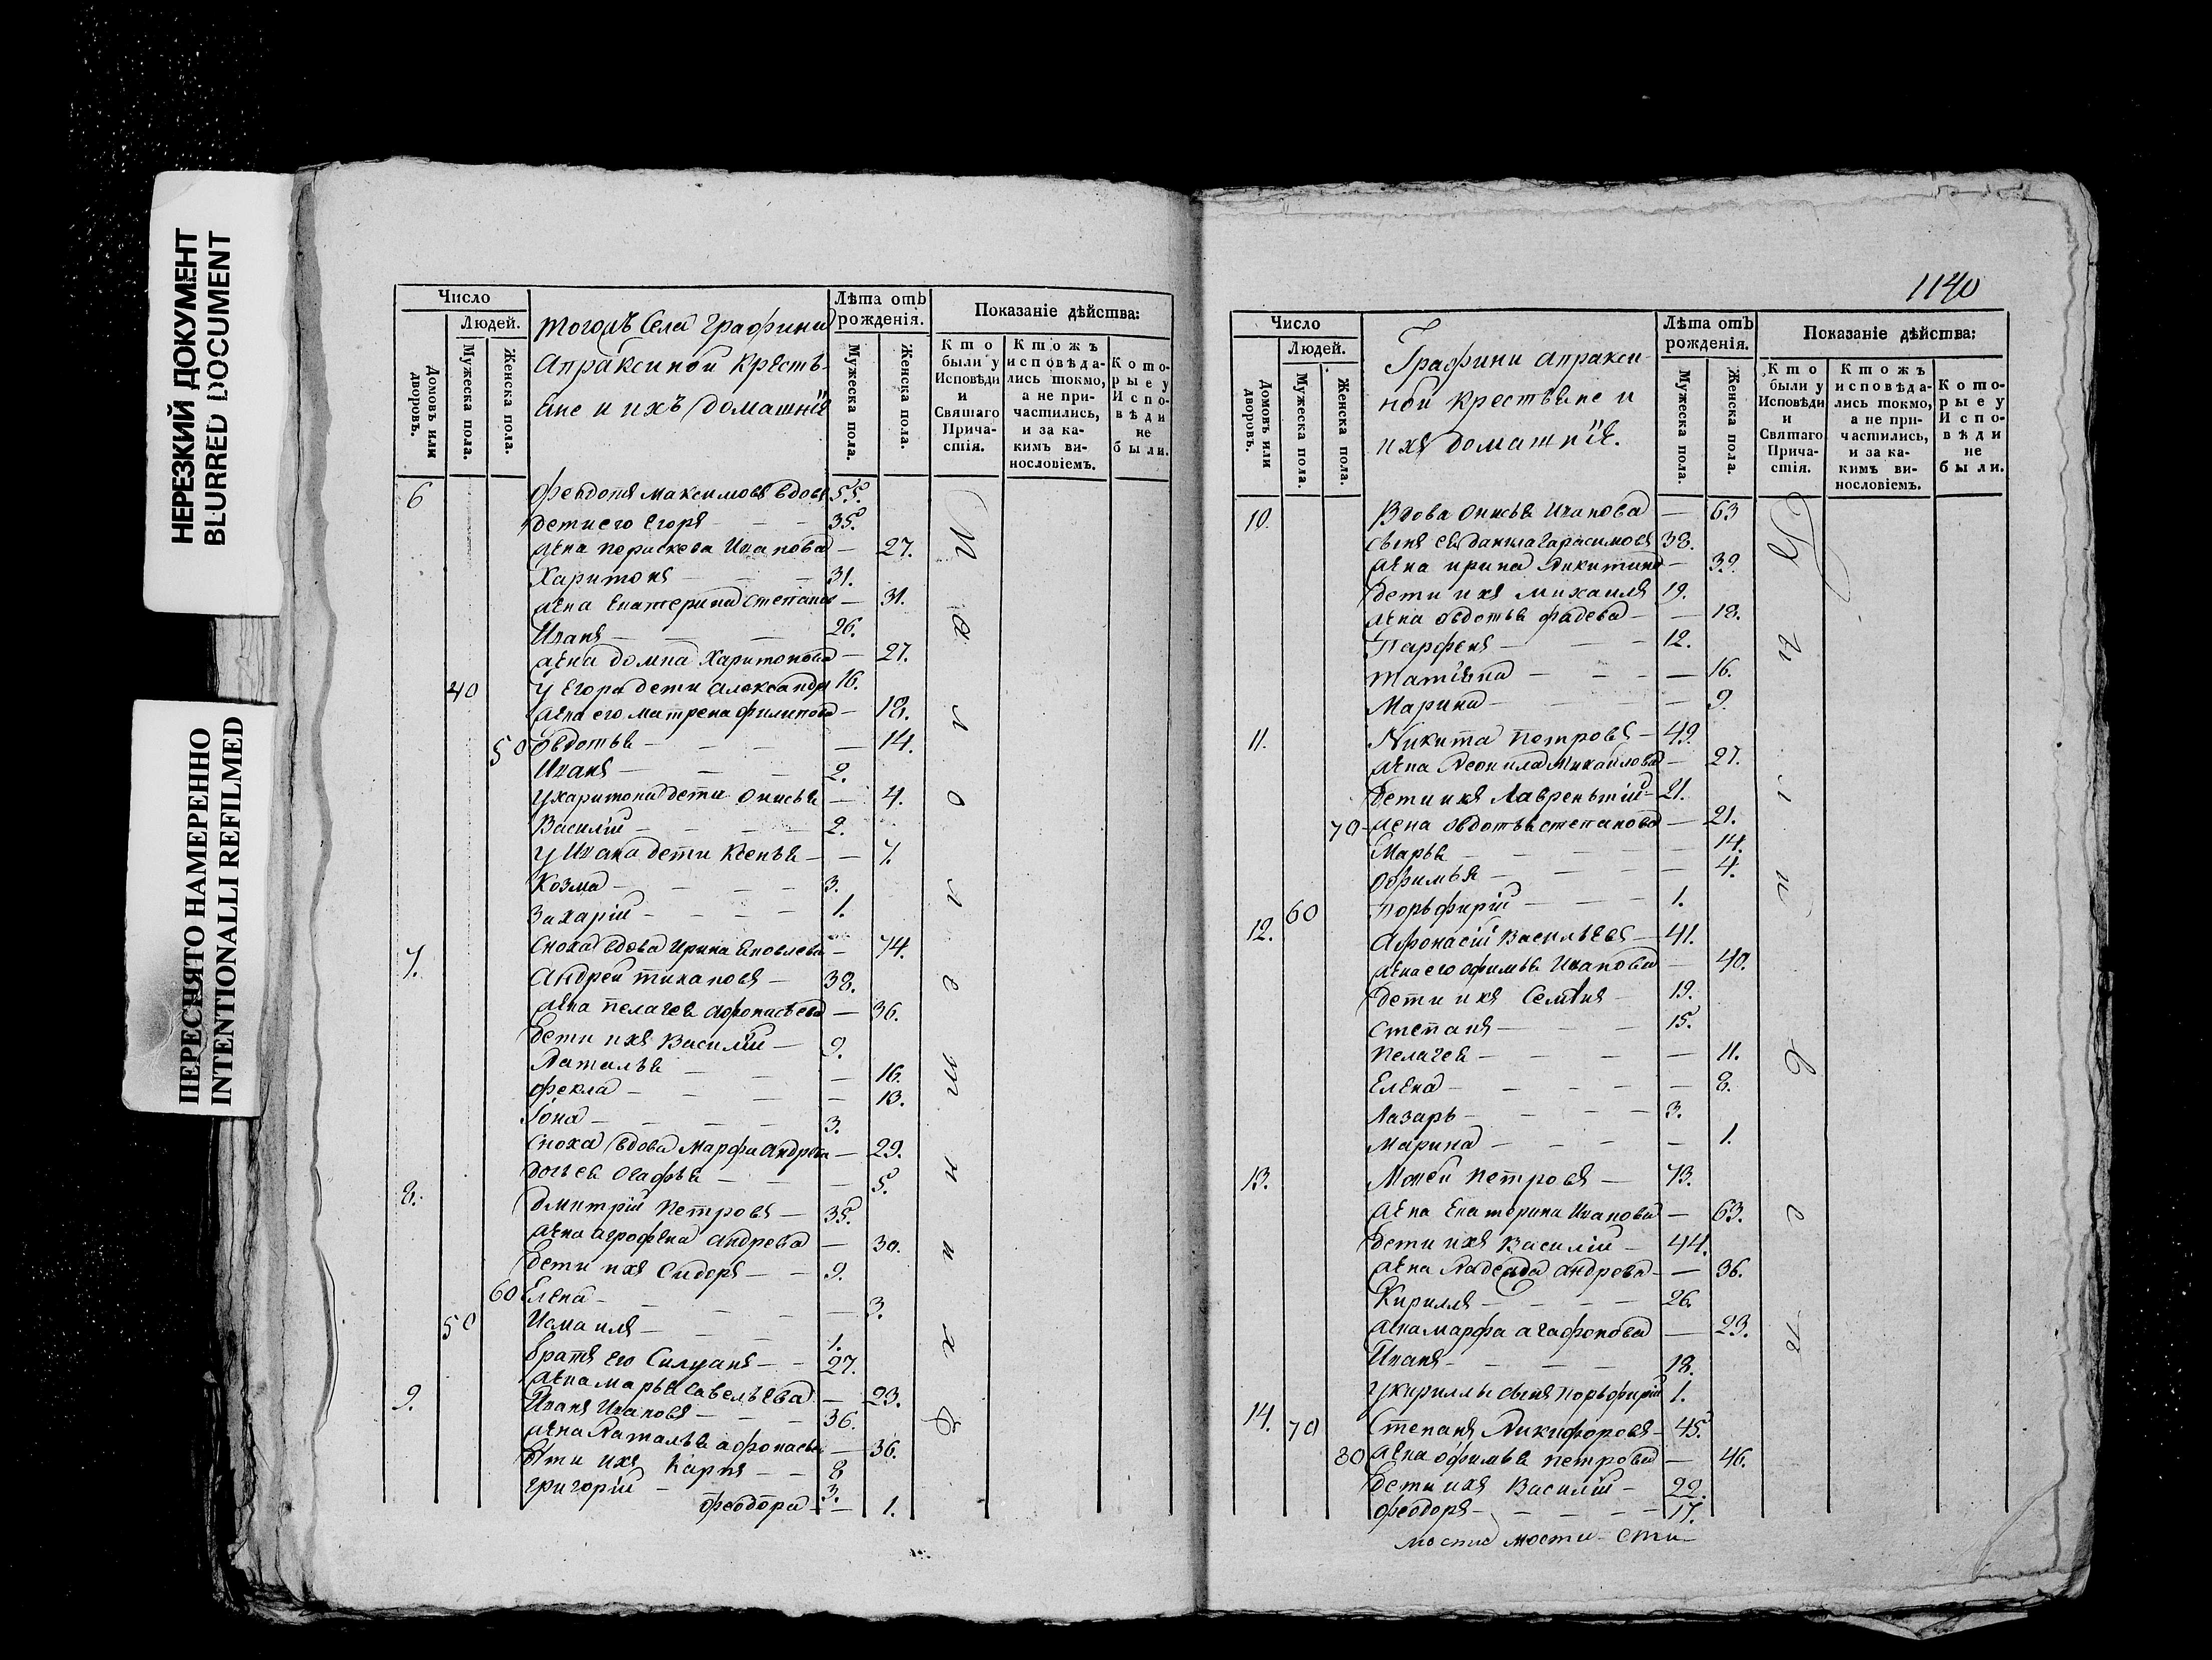 НЕРЕЗКИЙ ДОКУМЕНТ
BLURRED DOCUMENT
ПЕРЕСНЯТО НАМЕРЕННО
INTENTIONALLI REFILMED
Число
Людей.
Домовъ или дворовъ.
Мужеска пола.
Женска пола.
тогожъ Села Графини
Апраксиной Крестъ-
яне и ихъ домашнїя
Лѣта отъ рожденія.
Мужеска пола.
Женска пола.
Показаніе дѣйства:
Кто были у Исповѣди и Святаго Причастія.
Кто жъ исповѣдались токмо, а не причастились, и за какимъ винословіемъ.
Которые у Исповѣди не были.
6 Федотъ Максимовъ вдовъ 55.
дети его Егоръ 35.
жена Пораскева Иванова 27.
Харитонъ 31.
жена Екатерина Степанов 31.
Иванъ 26.
жена Домна Харитонова 27.
40 у Егора дети Александръ 16.
жена его Матрена Филипова 18.
50 Овдотья 14.
Иванъ 2.
у Харитона дети Онисья 4.
Василій 2.
у Ивана дети Ксенья 7.
Козма 3.
Захарій 1.
Сноха вдова Ирина Яковлева 74.
7. Андрей Тихановъ 38.
жена Пелагея Афонасьева 36.
дети ихъ Василій 9.
Наталья 16.
Фекла 13.
Іона 3.
Сноха вдова Марфа Андрева 29.
дочь ея Огафья 5.
8. Дмитрій Петровъ 35.
жена Агрофена Андрева 30.
дети ихъ Сидоръ 9.
60 Елена 3.
50 Исмаилъ 1.
братъ его Силуанъ 27.
жена Марья Савельева 23.
9. Иванъ Ивановъ 36.
жена Наталья Афонасьев 36.
дети ихъ Карпъ 8
Григорій 3.
Феодора 1.
1140
Число
Людей.
Домовъ или дворовъ.
Мужеска пола.
Женска пола.
Графини Апракси-
ной крестьяне и
ихъ домашнїя.
Лѣта отъ рожденія.
Мужеска пола.
Женска пола.
Показаніе дѣйства:
Кто были у Исповѣди и Святаго Причастія.
Кто жъ исповѣдались токмо, а не причастились, и за какимъ винословіемъ.
Которые у Исповѣди не были.
10. Вдова Онисья Иванова 63
сынъ ея Данила Гарасимовъ 38.
жена Ирина Никитина 39.
дети ихъ Михаилъ 19.
жена Овдотья Фадева 18.
Парфенъ 12.
Татіяна 16.
Марина 9.
11. Никита Петровъ 49.
жена Неонила Михайлова 27.
дети ихъ Лаврентій 21.
70 жена Овдотья Степанова 21.
Марья 14.
Офимья 4.
60 Порьфирій 1.
12. Афонасій Васильевъ 41.
жена его Офимья Иванова 40.
дети ихъ Семенъ 19.
Степанъ 15.
Пелагея 11.
Елена 8.
Лазарь 3.
Марина 1.
13. Мокей Петровъ 73.
жена Екатерина Иванова 63.
дети ихъ Василій 44.
жена Надежда Андрева 36.
Кирилъ 26.
жена Марфа Агафонова 23.
Иванъ 18.
у Кирилы сынъ Порьфирій 1.
14. 70 Степанъ Никифоровъ 45.
80 жена Офимья Петрова 46.
дети ихъ Василій 22.
Феодоръ 17.